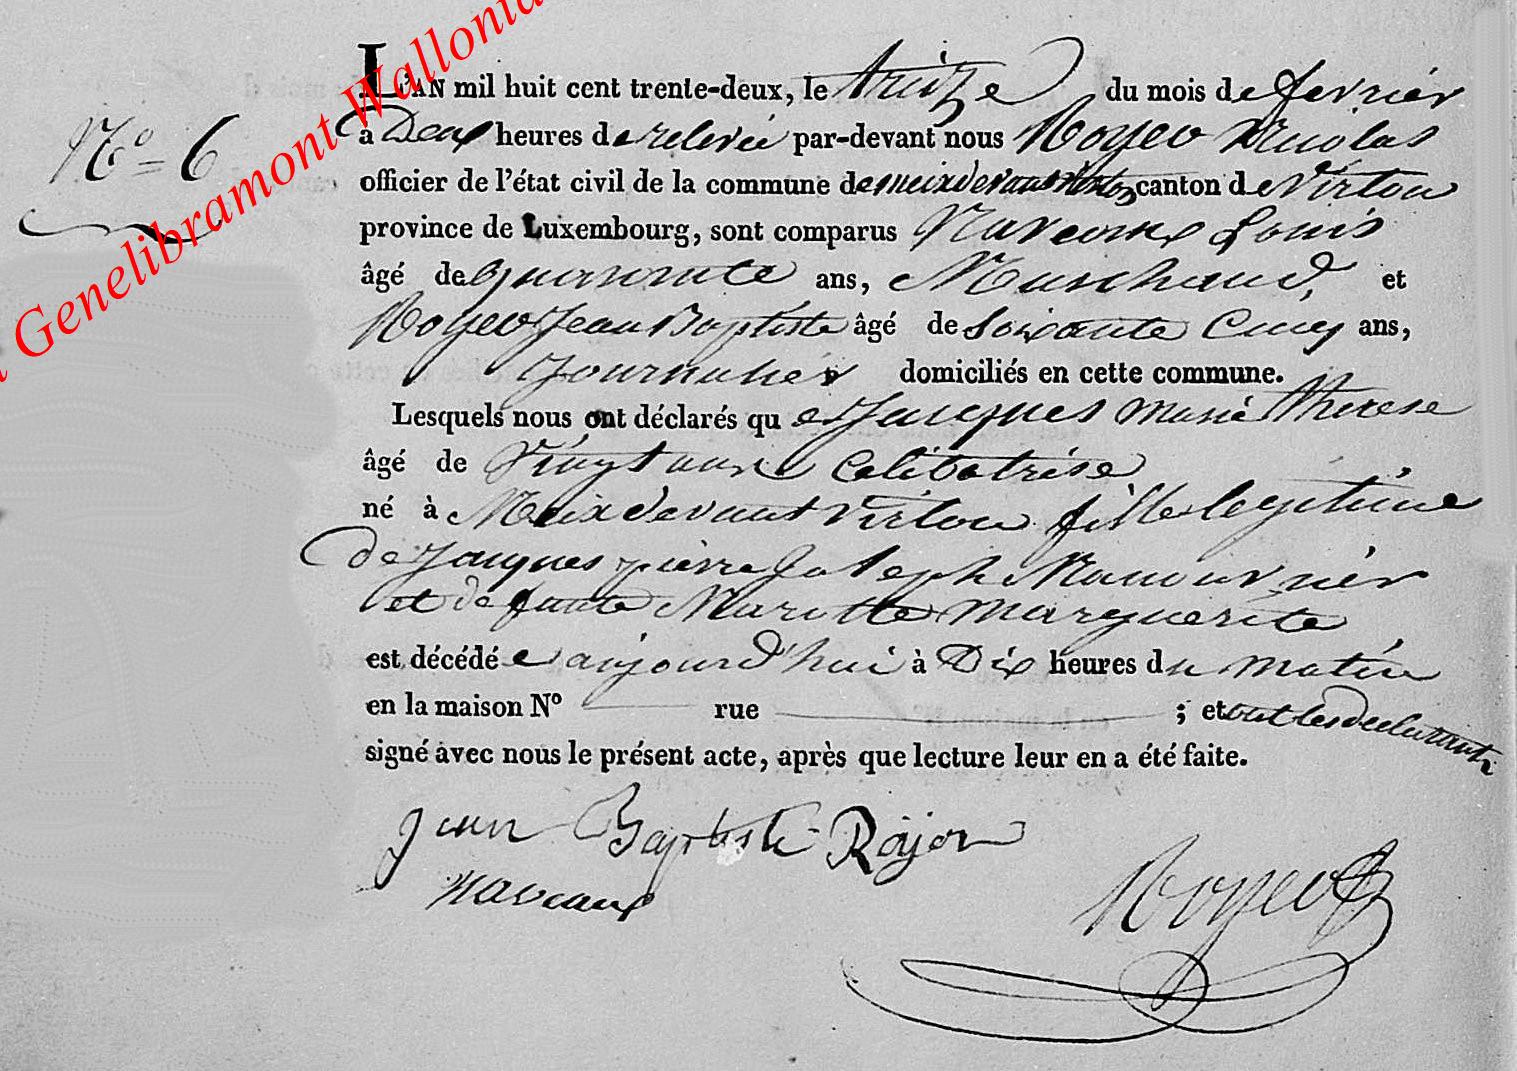 Genelibramont Wallonia
N° = 6
L'AN mil huit cent trente-deux, le treize du mois de fevrier
à Deux heures de relevée par-devant nous Royer Nicolas
officier de l'état civil de la commune de meixdevant Virton canton de Virton
province de Luxembourg, sont comparus Naveaux Louis
âgé de quarante ans, Marchand, et
Royer Jean Baptiste âgé de Soixante Cinq ans,
Journalier domiciliés en cette commune.
Lesquels nous ont déclarés qu e Jacques marie therese
âgé de Vingt ans Celibatrise
né à Meixdevant Virton fille legitime
de Jacques pierre Joseph Manouvrier
et defunte Mariette Marguerite
est décédé e aujourd'hui à Dix heures du matin
en la maison N° rue ; et ont les declarants
signé avec nous le présent acte, après que lecture leur en a été faite.
Jean Baptiste Rojer
naveaux
Royer